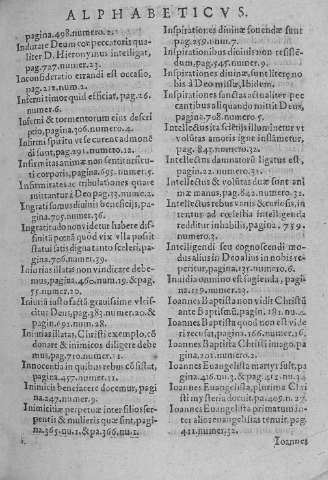 ALPHABETICVS.
pagina.408.numero.2.
Indurare Deum cor peccatoris qua-
liter D. Hieronymus intelligat,
pag.727.numer.23.
Inconsideratio errandi est occasio,
pag.212.num.2.
Inferni timor quid efficiat, pag.26.
numer.6.
Inferni & tormentorum eius descri
ptio, pagina.306.numero.4.
Infirmi spiritu vt se curent admoné
di sunt, pag.291.numero.12.
Infirmitas animæ non sentitur sicu-
ti corporis, pagina.695.numer.5.
Infirmitates ac tribulationes quare
mittantur à Deo pag.13.numer.2.
Ingratissimus diuini beneficij, pa-
gina.705.numer.36.
Ingratitudo non videtur habere dif-
finitā poenā quòd vix vlla possit
statui satis digna tanto sceleri, pa-
gina.706.numer.39.
Iniurias illatas non vindicare debe-
mus, pagina.460.num.19.& pag.
55.numer.20.
Iniuria iusto facta grauissime vlcis-
citur Deus, pag.383.numer.20.&
pagin.691.num.28.
Iniurias illatas, Christi exemplo, cō
donare & inimicos diligere debe
mus, pag.710.numer.11.
Innocentia in quibus rebus cōsistat,
pagina.457.numer.11.
Inimicis benefacere docemur, pagi
na.247.numer.9.
Inimicitiæ perpetuæ inter filios ser-
pentis & mulieris quæ sint, pagi-
na.365.nu.1.& pa.366.nu.1.
Inspirationes diuinæ fouendæ sunt
pag.259.num.7.
Inspirationibus diuinis non resistē-
dum, pag.545.numer.9.
Inspirationes diuinæ, sunt literę no
bis à Deo missæ, Ibidem.
Inspirationes sanctas aduocaliter pec
cantibus aliquando mittit Deus,
pag.708.numer.5.
Intellectus ita scietijs illuminetur vt
voluntas amoris igne inflāmetur,
pag.845.numero.32.
Intellectus damnatorū ligatus est,
pagin.22.numero.31.
Intellectus & volūtas duæ sunt ani
mæ manus, pag.642.numero.31.
Intellectus rebus vanis & curiosis, in
tentus ad coelestia intelligenda
redditur inhabilis, pagina, 759.
numero.3.
Intelligendi seu cognoscendi mo-
dus alius in Deo alius in nobis re-
peritur, pagina.135.numero.6.
Inuidia omnino est fugienda, pagi
na.159.numer.23.
Ioannes Baptista non vidit Christū
ante Baptismū, pagin.181.nu.4.
Ioannes Baptista quod non est vide
ri recusat, pagina.166.numer.36.
Ioannes Baptista Christi imago, pa
gina.201.numero.2.
Ioannes Euangelista martyr fuit, pa
gina.416.nu.3.& pag.412.nu.34
Ioannes Euangelista, plurima Chri
sti mysteria docuit.pa.409.nu.24.
Ioannes Euangelista primatum in-
ter alios euangelistas tenuit. pag.
411.numer.32.
Ioannes